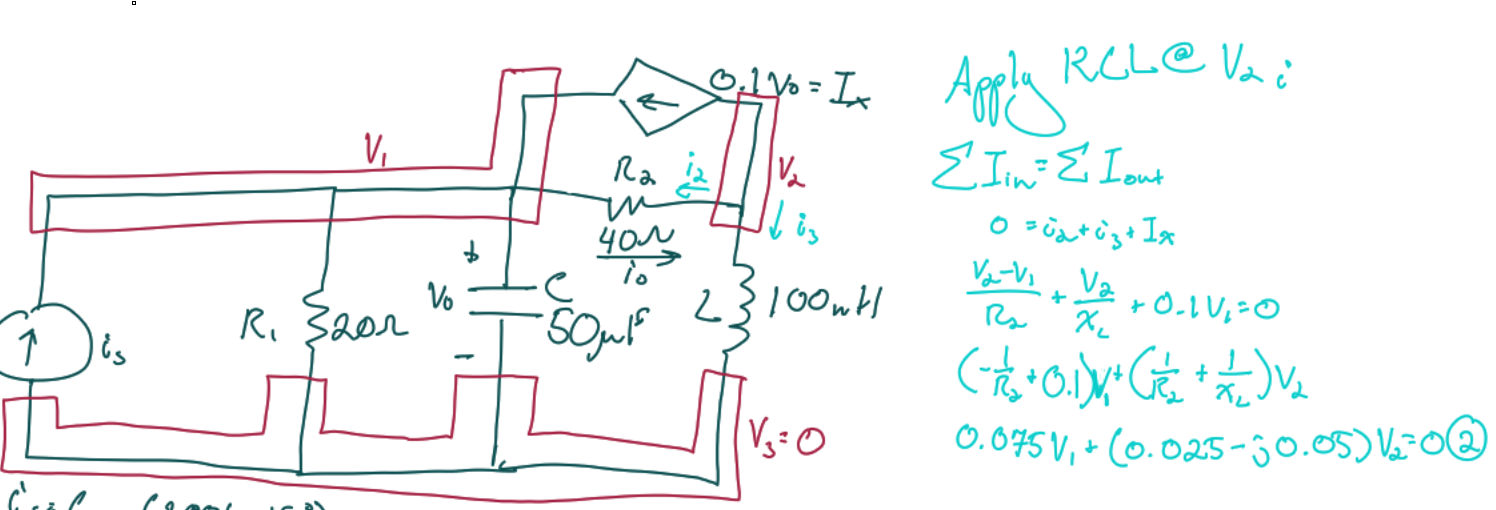 0.1V₀ = Iₓ
V₁
R₂
i₂
V₂
i₃
40Ω
i₀
+
V₀
-
C
50μF
L
100mH
R₁
20Ω
iₛ
V₃=0
Apply KCL@ V₂ :
ΣI_in = ΣI_out
0 = i₂+i₃+Iₓ
(V₂-V₁)/R₂ + V₂/X_L + 0.1V₁=0
(-1/R₂+0.1)V₁+(1/R₂ + 1/X_L)V₂
0.075V₁+(0.025-j0.05)V₂=0 ②